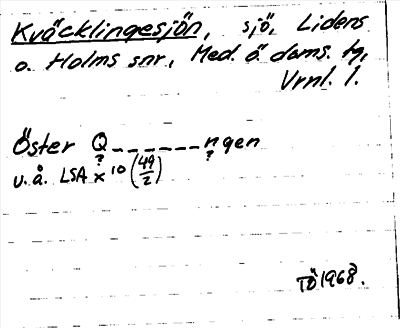 Kväcklingesjön, sjö, Lidens
o. Holms snr, Med. ö. doms. tg,
Vrnl. l.
Öster Q_ _ _ _ _ _ _ngen
? ?
u. å. LSA x 10 (49/2)
TÖ 1968.